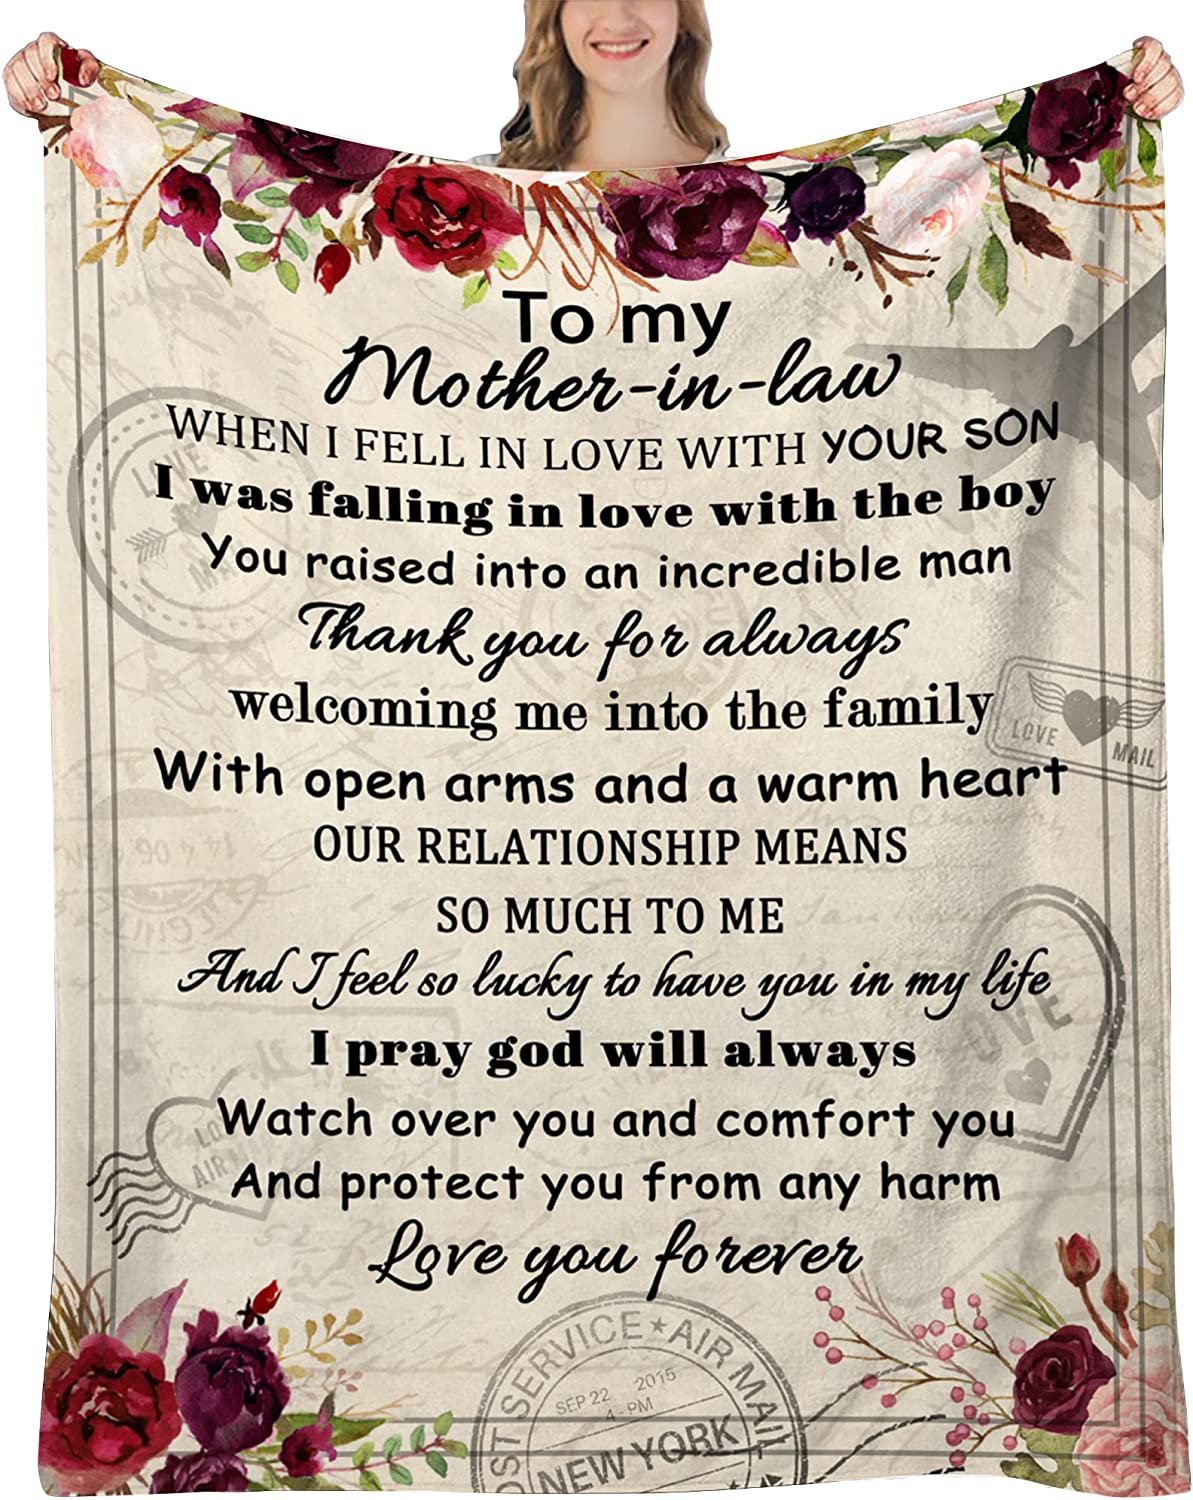 To my
Mother-in-law
WHEN I FELL IN LOVE WITH YOUR SON
I was falling in love with the boy
You raised into an incredible man
Thank you for always
welcoming me into the family
With open arms and a warm heart
OUR RELATIONSHIP MEANS
SO MUCH TO ME
And I feel so lucky to have you in my life
I pray god will always
Watch over you and comfort you
And protect you from any harm
Love you forever
LOVE
LOVE MAIL
LOVE
AIR M
OST SERVICE ★ AIR MAIL
SEP 22 2015
4 - PM
NEW YORK